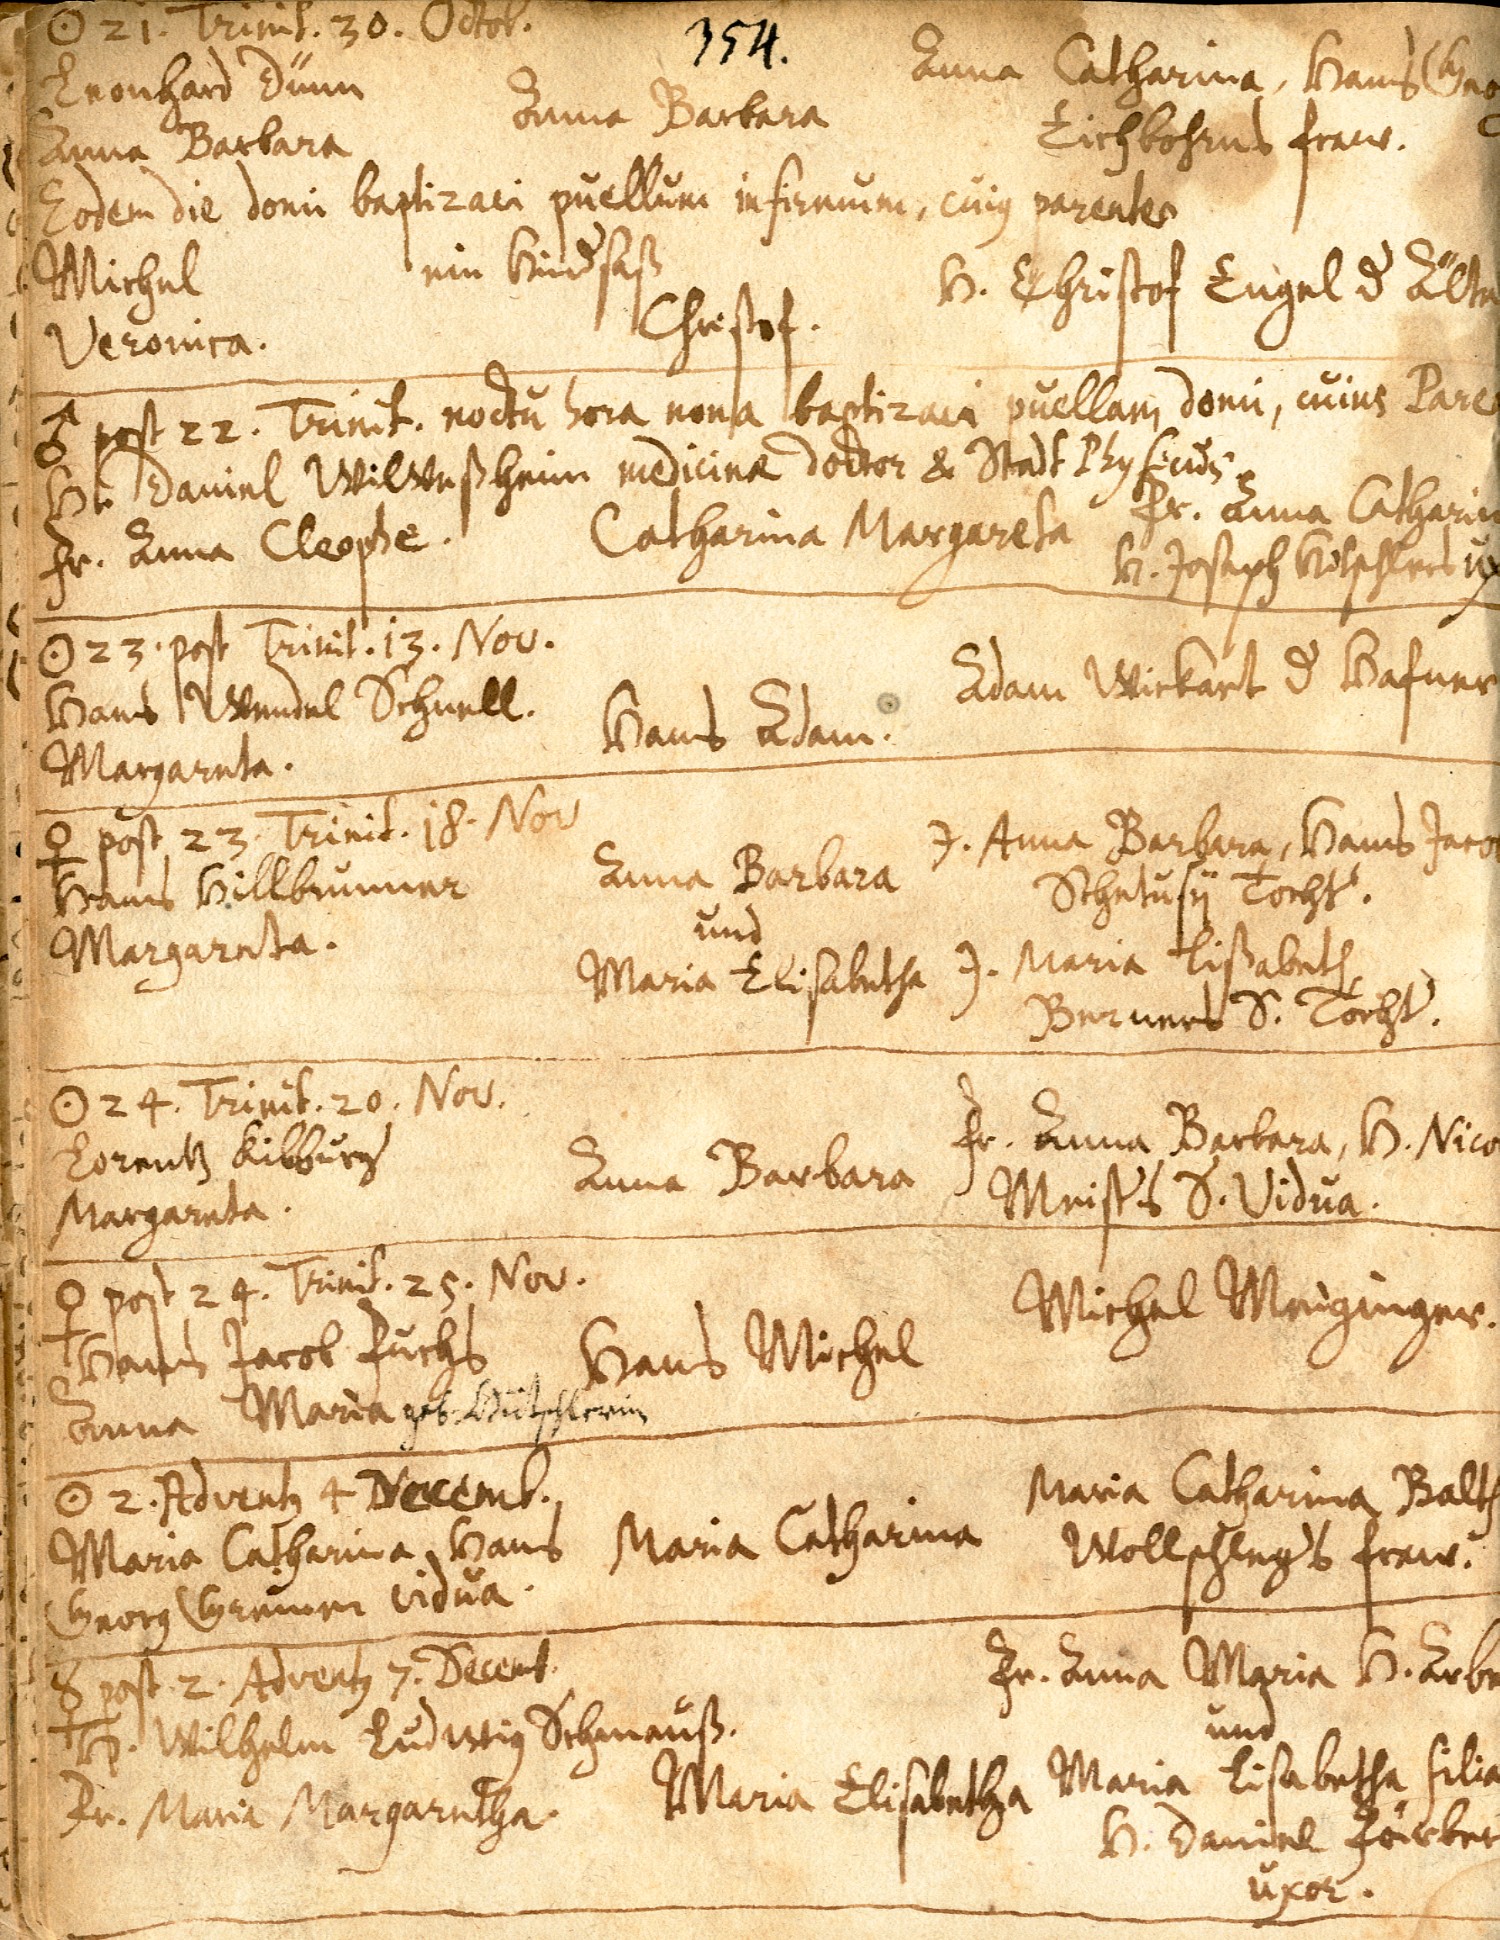 354.
☉ 21. Trinit. 30. Octob.
Leonhard Dünn
Anna Barbara
Anna Barbara
Anna Catharina, Hans Geo
Eichbohrns fraw.
Eodem die domi baptizavi puellum infirmum, cuius parentes
Michel
ein Hindsaß
Veronica.
Christof.
H. Christof Engel d Älte
♂ post 22. Trinit. noctu hora nona baptizavi puellam domi, cuius Pare
Hr. Daniel Wilweßheim medicinæ doctor & Stadt Physicus
fr. Anna Cleophe.
Catharina Margareta
Fr. Anna Catharin
H. Joseph Hötschlers ux
☉ 23. post Trinit. 13. Nov.
Hans Wendel Schnell.
Margareta.
Hans Adam.
Adam Wickart d Hafner
♀ post 23. Trinit. 18. Nov
Hans Hillbrunner
Margareta.
Anna Barbara
und
Maria Elisabetha
J. Anna Barbara, Hans Jaco
Schetusij Tocht.
J. Maria Lißabeth
Berners S. Tocht.
☉ 24. Trinit. 20. Nov.
Lorentz Kibburg
Margareta.
Anna Barbara
fr. Anna Barbara, H. Nico
Meisters S. Vidua.
♀ post 24. Trinit. 25. Nov.
Hans Jacob Fuchs
Anna Maria geb. Hütschlerin
Hans Michel
Michel Meuginger.
☉ 2. Advents 4 Decemb.
Maria Catharina, Hans
Georg Greinen vidua.
Maria Catharina
Maria Catharina Balth
Wollschlegers fraw.
☿ post 2. Advents 7. Decemb.
H. Wilhelm Ludwig Schmauß.
Fr. Maria Margaretha.
Maria Elisabetha
Fr. Anna Maria H. Arbo
und
Maria Lisabetha filia
H. Daniel Förber
uxor.